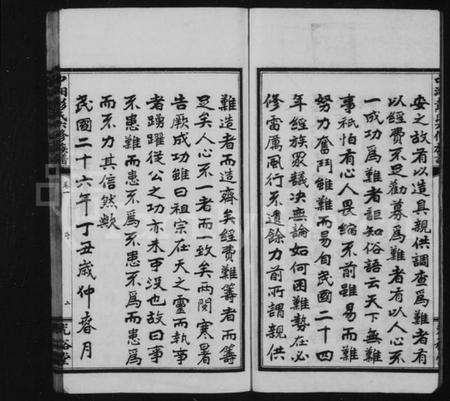 安之故有以造具親供調查爲難者有
以經費不足勸募爲難者有以人心不
一成功爲難者詎知俗語云天下無難
事祇怕有心人畏縮不前雖易而難
努力奮鬥雖難而易自民國二十四
年經族衆議决無論如何困難勢在必
修雷厲風行不遺餘力前所謂親供
難造者而造齊矣經費難籌者而籌
足矣人心不一者而一致矣兩閱寒暑
告厥成功雖曰祖宗在天之靈而執事
者踴躍從公之功亦未可没也故曰事
不患難而患不爲不患不爲而患爲
而不力其信然歟
民國二十六年丁丑歲仲春月
中湘彭氏六修族譜
卷一
序
上
光裕堂